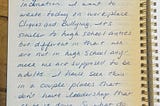 Indonation. I want to
write today on workplace
cliques and bullying. It's
similar to high school antics
but different in that we
are not in high school any
more we are supposed to be
adults. I have seen this
in a couple places that
don't have leadership that